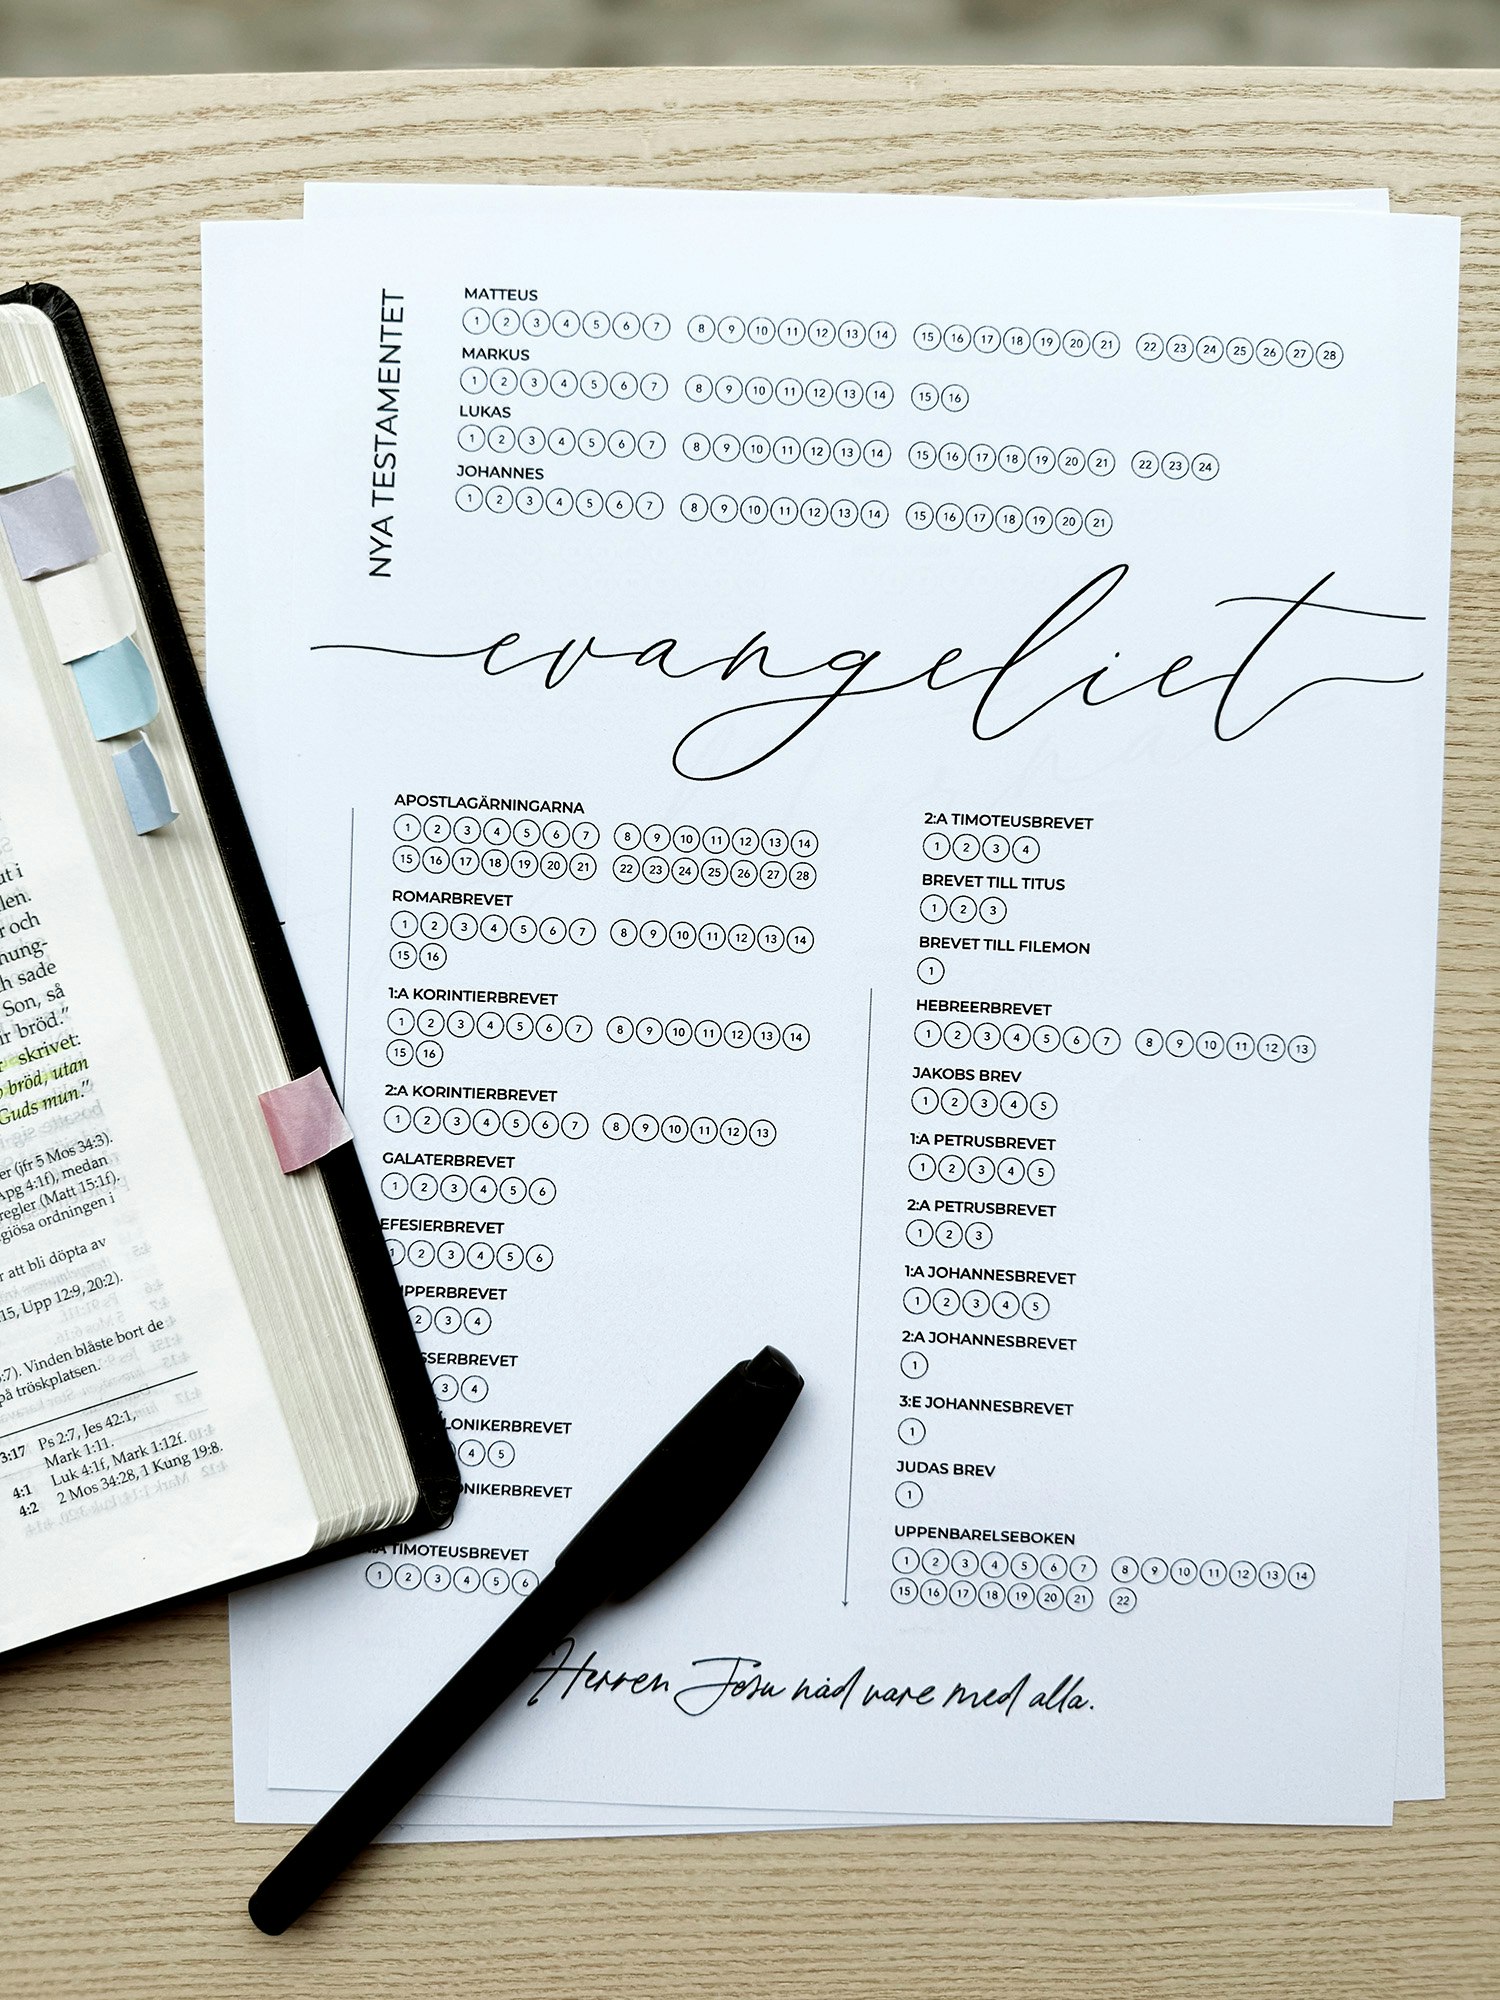 NYA TESTAMENTET
MATTEUS
1 2 3 4 5 6 7 8 9 10 11 12 13 14 15 16 17 18 19 20 21 22 23 24 25 26 27 28
MARKUS
1 2 3 4 5 6 7 8 9 10 11 12 13 14 15 16
LUKAS
1 2 3 4 5 6 7 8 9 10 11 12 13 14 15 16 17 18 19 20 21 22 23 24
JOHANNES
1 2 3 4 5 6 7 8 9 10 11 12 13 14 15 16 17 18 19 20 21
evangeliet
APOSTLAGÄRNINGARNA
1 2 3 4 5 6 7 8 9 10 11 12 13 14
15 16 17 18 19 20 21 22 23 24 25 26 27 28
ROMARBREVET
1 2 3 4 5 6 7 8 9 10 11 12 13 14
15 16
1:A KORINTIERBREVET
1 2 3 4 5 6 7 8 9 10 11 12 13 14
15 16
2:A KORINTIERBREVET
1 2 3 4 5 6 7 8 9 10 11 12 13
GALATERBREVET
1 2 3 4 5 6
EFESIERBREVET
1 2 3 4 5 6
IPPERBREVET
2 3 4
SSERBREVET
3 4
LONIKERBREVET
4 5
ONIKERBREVET
:A TIMOTEUSBREVET
1 2 3 4 5 6
2:A TIMOTEUSBREVET
1 2 3 4
BREVET TILL TITUS
1 2 3
BREVET TILL FILEMON
1
HEBREERBREVET
1 2 3 4 5 6 7 8 9 10 11 12 13
JAKOBS BREV
1 2 3 4 5
1:A PETRUSBREVET
1 2 3 4 5
2:A PETRUSBREVET
1 2 3
1:A JOHANNESBREVET
1 2 3 4 5
2:A JOHANNESBREVET
1
3:E JOHANNESBREVET
1
JUDAS BREV
1
UPPENBARELSEBOKEN
1 2 3 4 5 6 7 8 9 10 11 12 13 14
15 16 17 18 19 20 21 22
Herren Jesu nåd vare med alla.
ut i
len.
r och
hung-
h sade
Son, så
ir bröd.”
skrivet:
bröd, utan
Guds mun.”
er (jfr 5 Mos 34:3).
Apg 4:1f), medan
regler (Matt 15:1f).
giösa ordningen i
r att bli döpta av
15, Upp 12:9, 20:2).
:7). Vinden blåste bort de
på tröskplatsen.
3:17 Ps 2:7, Jes 42:1,
Mark 1:11.
4:1 Luk 4:1f, Mark 1:12f.
4:2 2 Mos 34:28, 1 Kung 19:8.